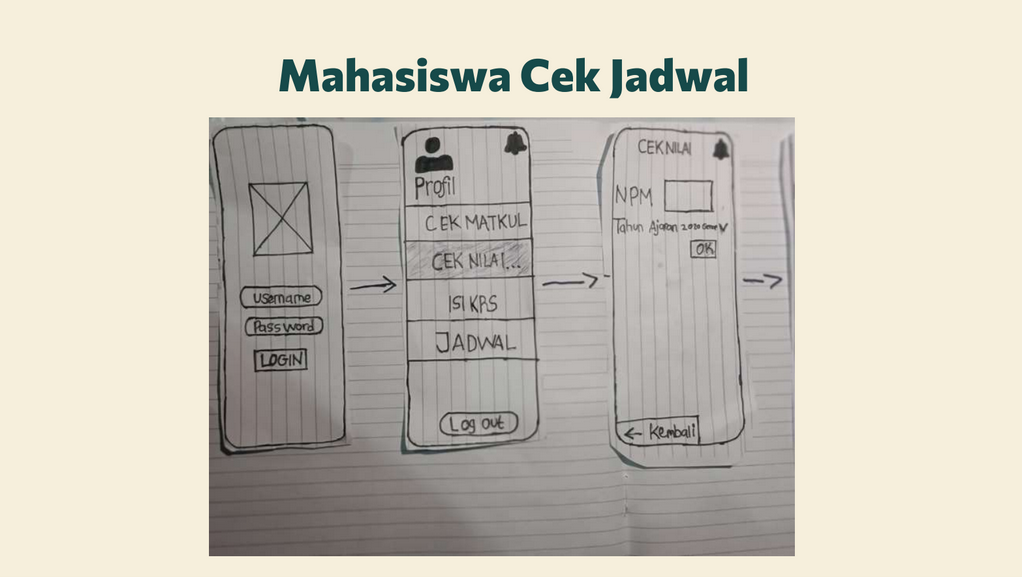 Mahasiswa Cek Jadwal
Username
Password
LOGIN
Profil
CEK MATKUL
CEK NILAI...
ISI KRS
JADWAL
Log out
CEK NILAI
NPM
Tahun Ajaran 2020
OK
← Kembali